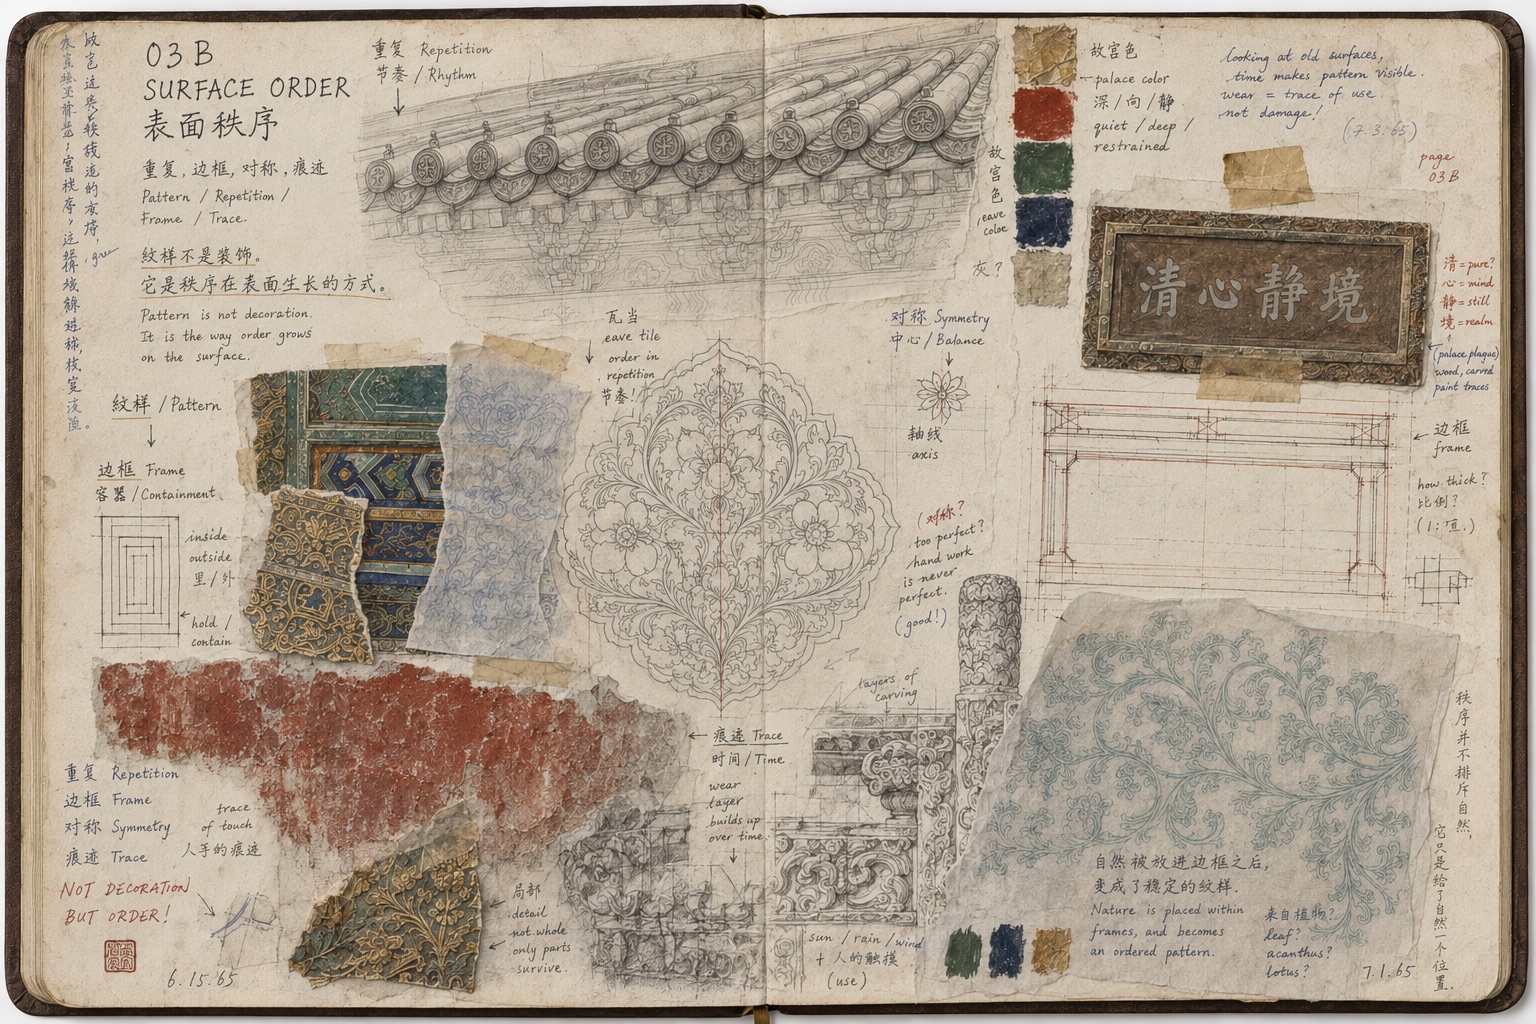 03 B
SURFACE ORDER
表面秩序
重复, 边框, 对称, 痕迹
Pattern / Repetition /
Frame / Trace.
紋样不是装饰。
它是秩序在表面生长的方式。
Pattern is not decoration.
It is the way order grows
on the surface.
重复 Repetition
节奏 / Rhythm
紋样 / Pattern
边框 Frame
容器 / Containment
inside
outside
里 / 外
hold /
contain
瓦当
eave tile
order in
repetition
节奏!
对称 Symmetry
中心 / Balance
軸线
axis
(对称?
too perfect?
hand work
is never
perfect.
(good!)
故宫色
palace color
深 / 向 / 静
quiet / deep /
restrained
故宫色
eave
color
灰?
looking at old surfaces,
time makes pattern visible.
wear = trace of use
not damage!
(7.3.65)
page
03 B
清心静境
清 = pure?
心 = mind
静 = still
境 = realm
(palace plaque)
wood, carved
paint traces
边框
frame
how thick?
比例?
layers of
carving
痕迹 Trace
时间 / Time
wear
layer
builds up
over time.
重复 Repetition
边框 Frame
对称 Symmetry
痕迹 Trace
trace
of touch
人手的痕迹
NOT DECORATION
BUT ORDER!
6.15.65
局部
detail
not whole
only parts
survive.
sun / rain / wind
+ 人的触摸
(use)
自然被放进边框之后,
变成了稳定的纹样.
Nature is placed within
frames, and becomes
an ordered pattern.
来自植物?
leaf?
acanthus?
lotus?
7.1.65
秩序并不排斥自然,
它只是给了自然一个位置.